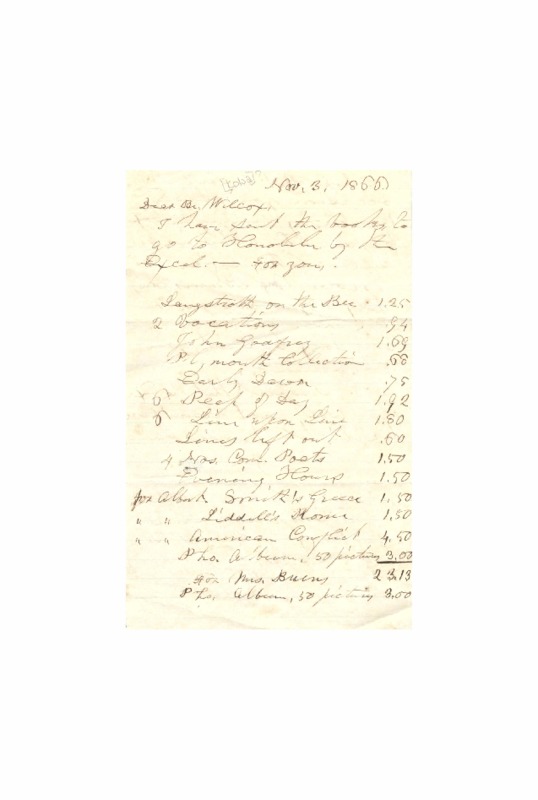 [Lowell]?
Nov. 3, 1866
Dear Br. Wilcox,
I have sent the books to
go to Honolulu by the
Excel. — for you.
Langstroth on the Bee 1.25
2 Vocations .94
John Godfrey 1.69
Plymouth Collection .68
Early Dawn .75
6 Peep of Day 1.92
6 Line upon Line 1.80
Lines left out .60
4 Nos. Com. Poets 1.50
Evening Hours 1.50
for Albert Smith's Greece 1.50
" " Liddell's Rome 1.50
" " American Conflict 4.50
Pho. Album, 50 pictures 3.00
for Mrs. 23.13
Pho. Album, 50 pictures 3.00